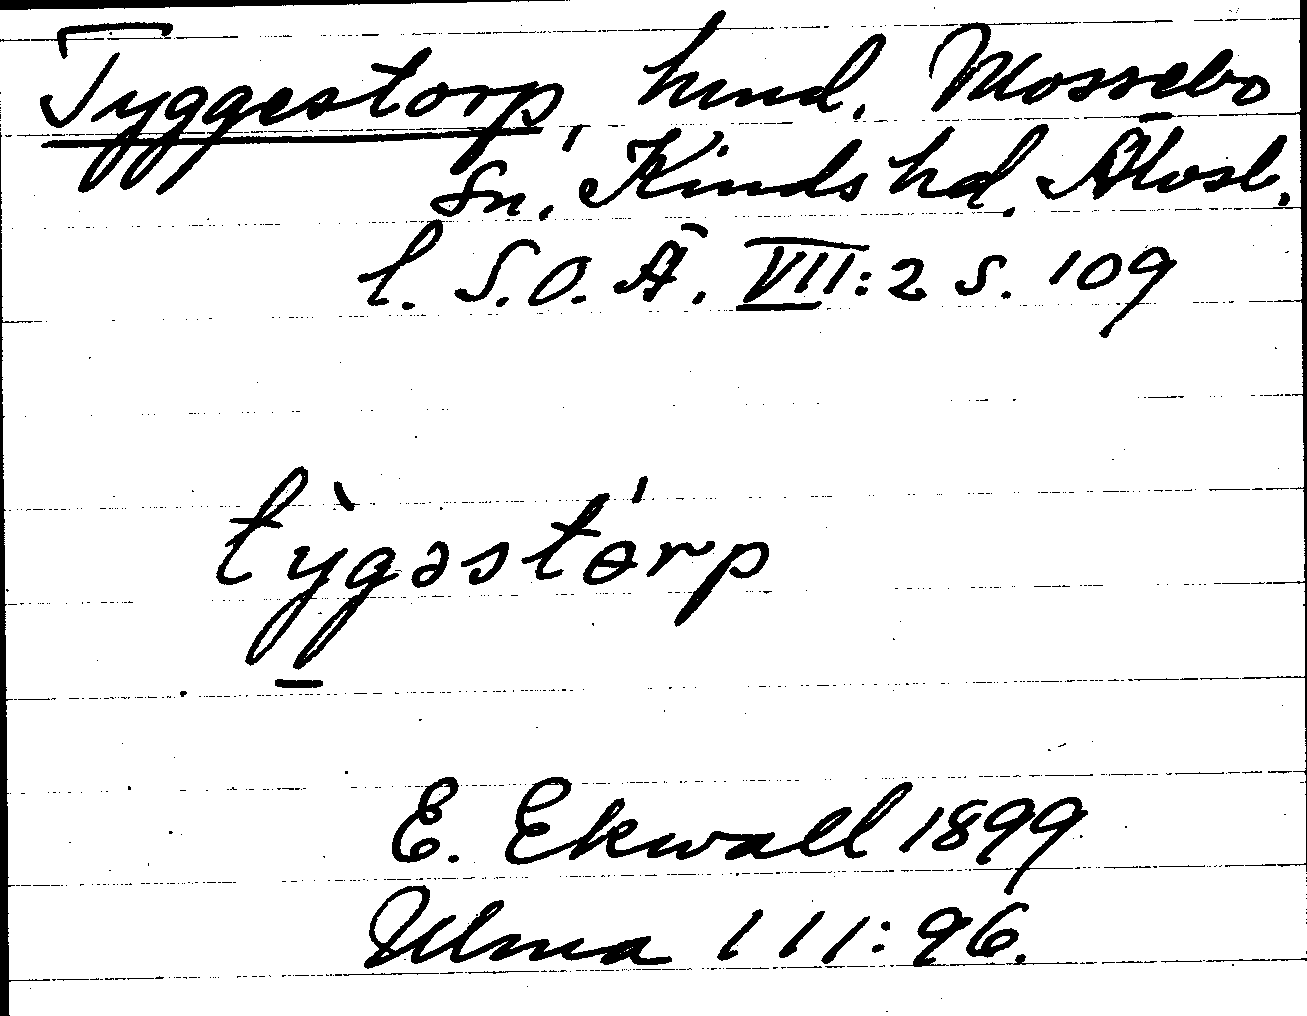 Tyggestorp, hmd. Mossebo
sn, Kinds hd. Älvsb.
l. S.O.Ä. VII:2 s. 109
tỳgəstɵ́rp
E. Ekwall 1899
Ulma 111:96.